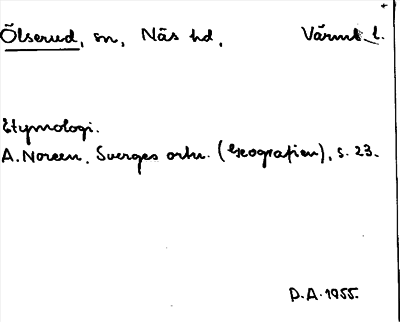 Ölserud, sn, Näs hd, Värml. l.
Etymologi.
A. Noreen, Sverges ortn. (Geografien), s. 23.
D.A. 1955.